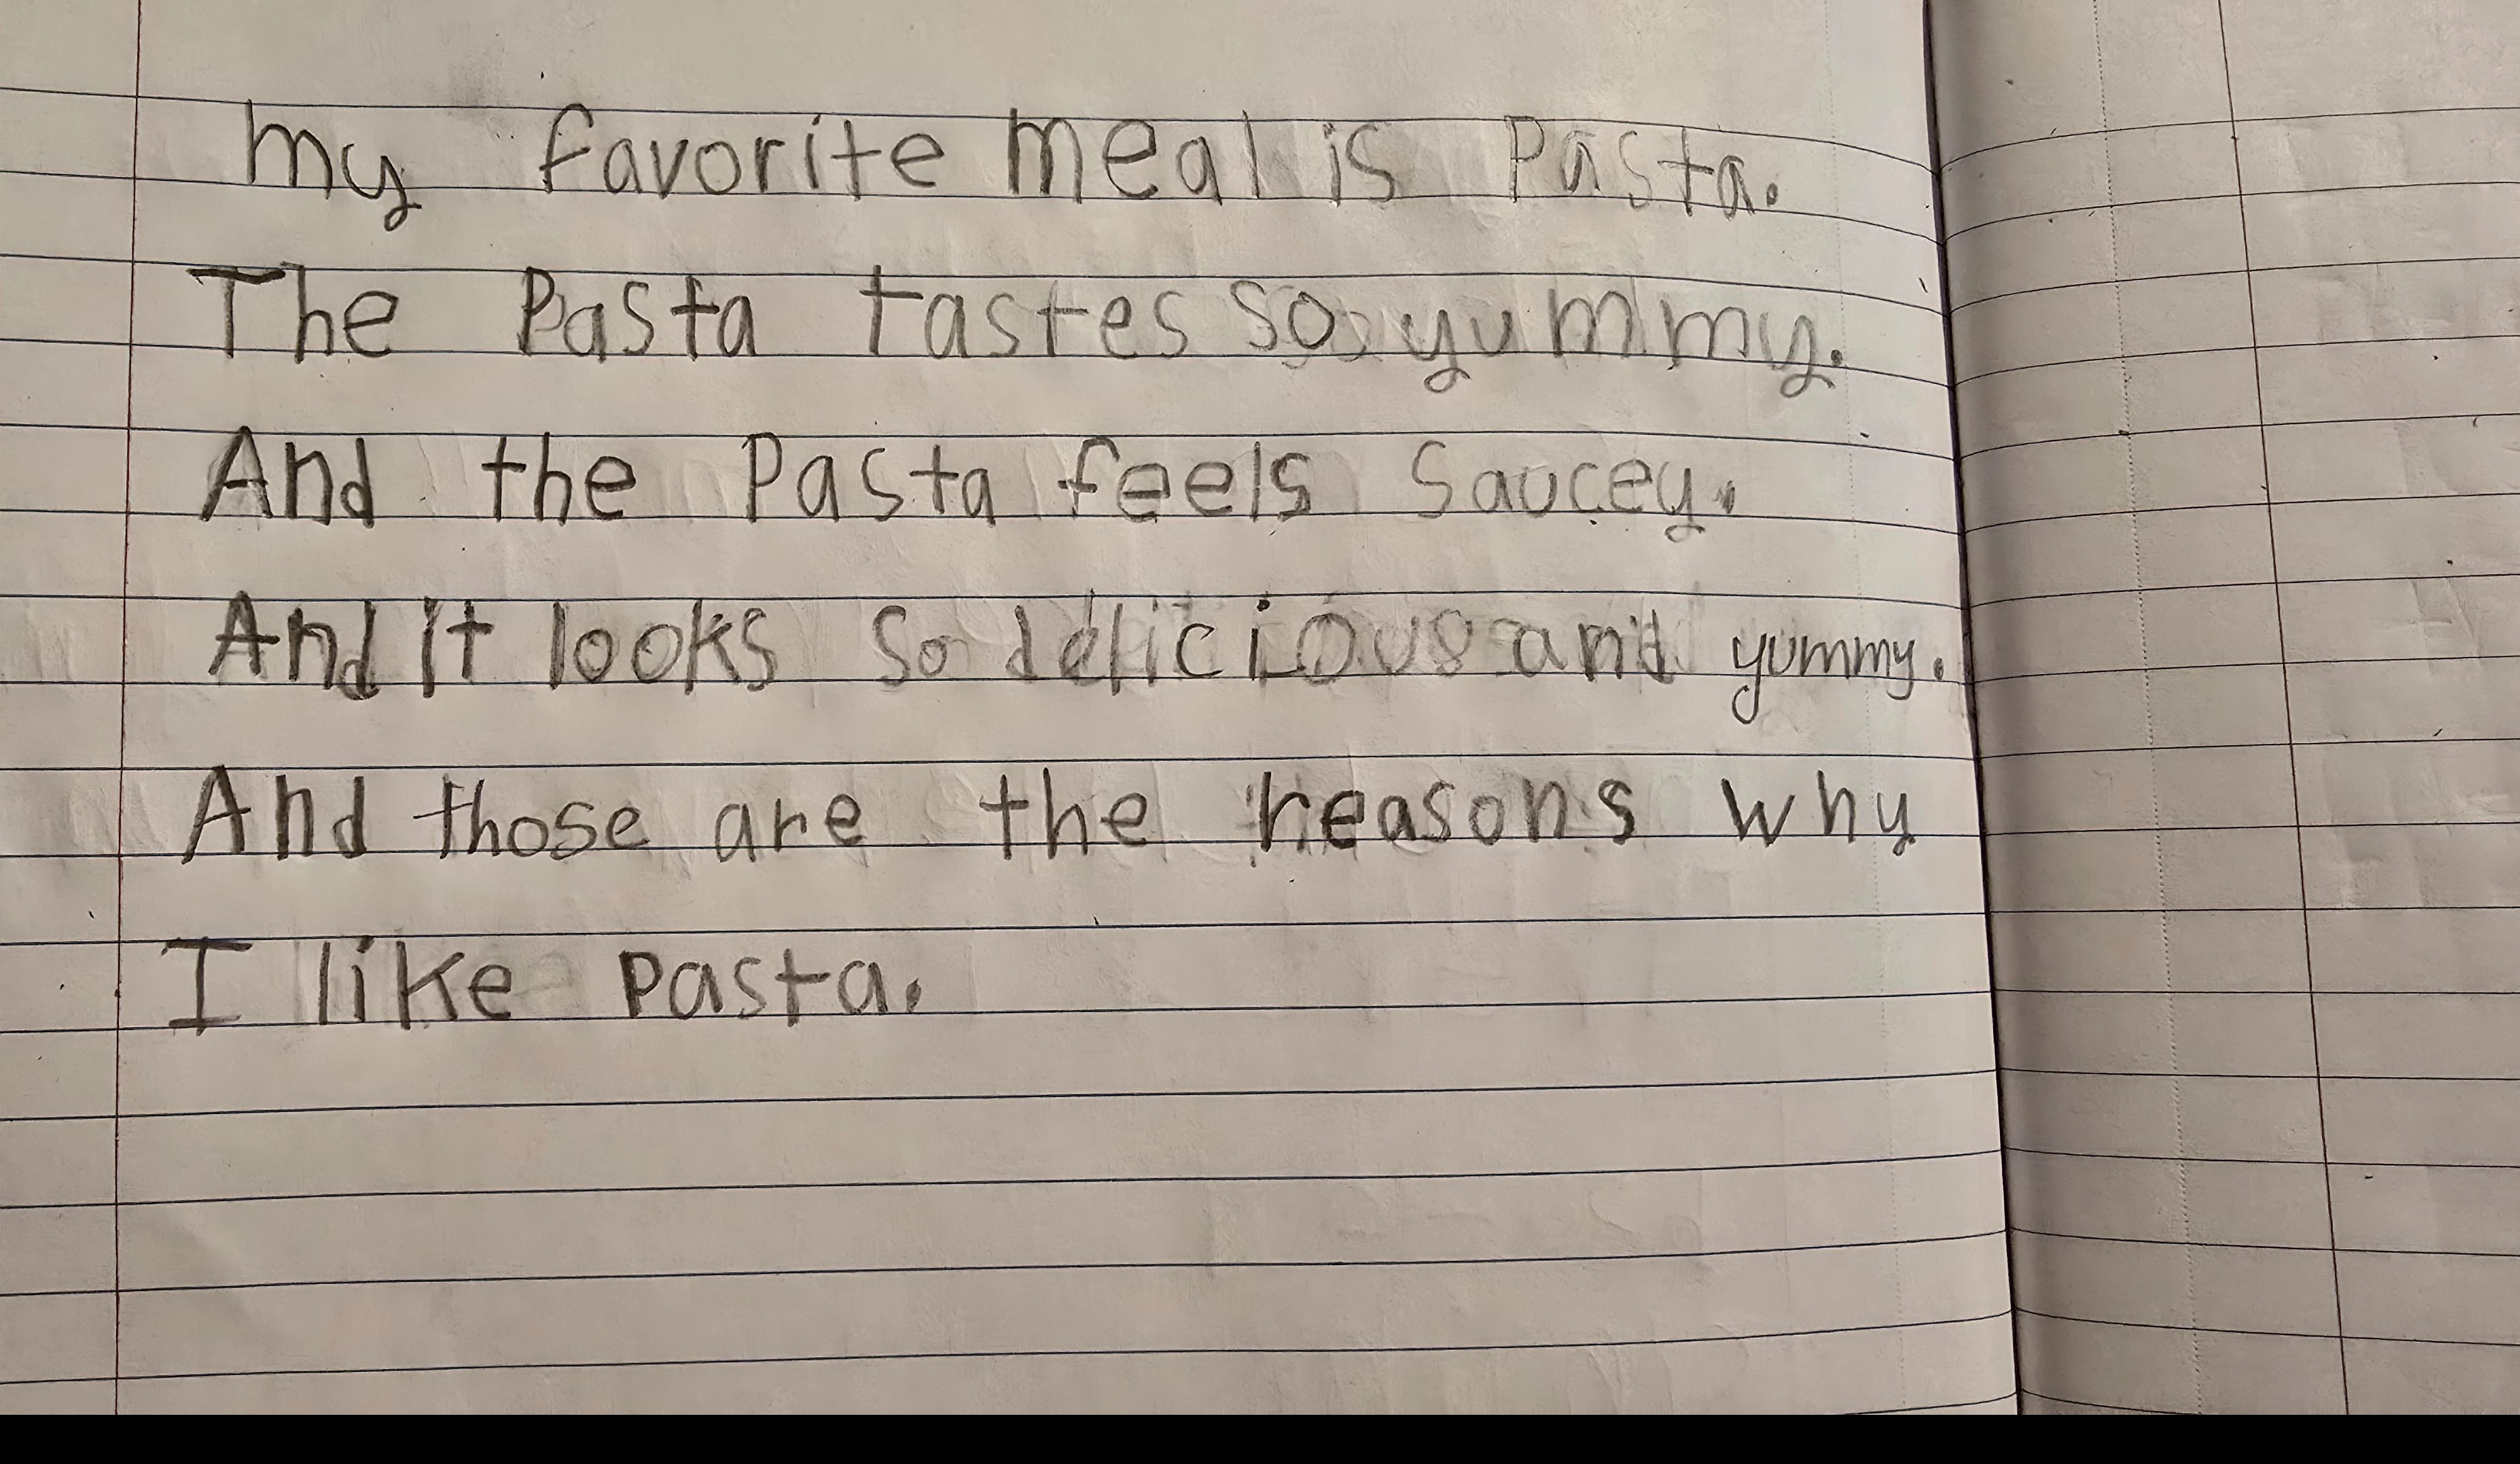 my favorite meal is Pasta.
The Pasta tastes so yummy.
And the Pasta feels Saucey.
And it looks so delicious and yummy.
And those are the reasons why
I like Pasta.